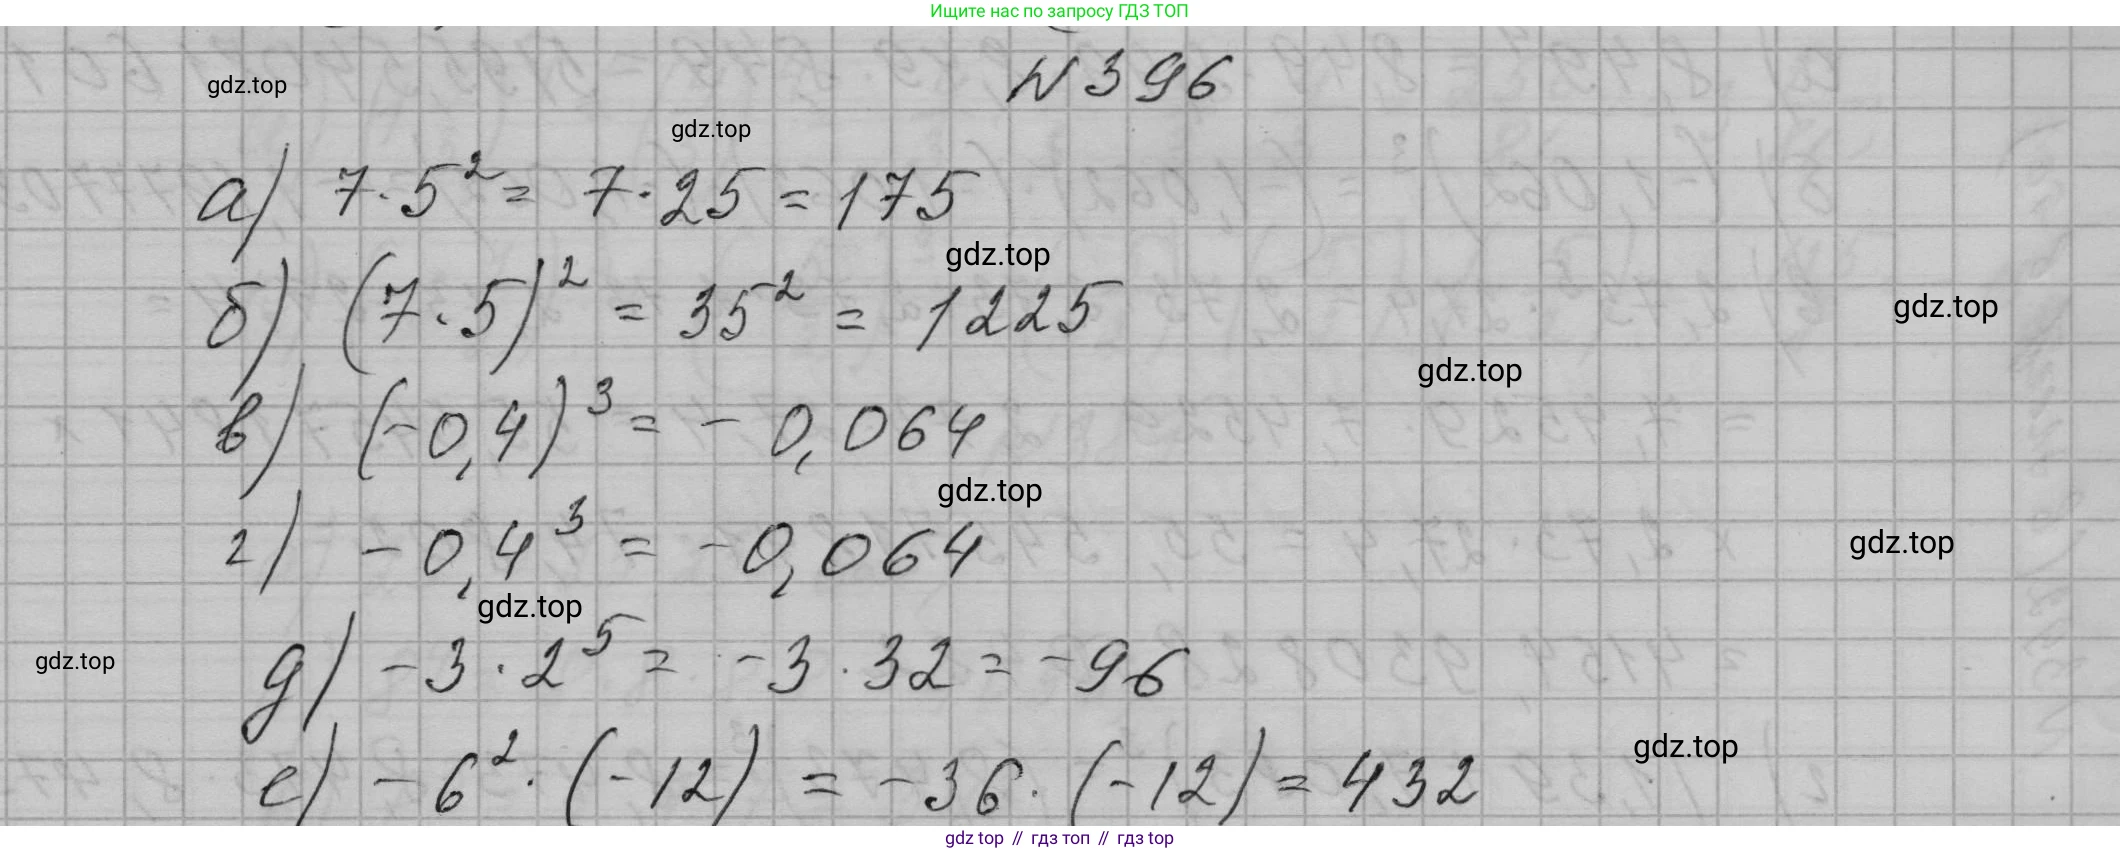 Ищите нас по запросу ГДЗ ТОП
№ 396
gdz.top
gdz.top
а) 7·5² = 7·25 = 175
gdz.top
б) (7·5)² = 35² = 1225
gdz.top
gdz.top
в) (-0,4)³ = -0,064
gdz.top
г) -0,4³ = -0,064
gdz.top
gdz.top
д) -3·2⁵ = -3·32 = -96
gdz.top
е) -6²·(-12) = -36·(-12) = 432
gdz.top
gdz top // гдз топ // гдз top